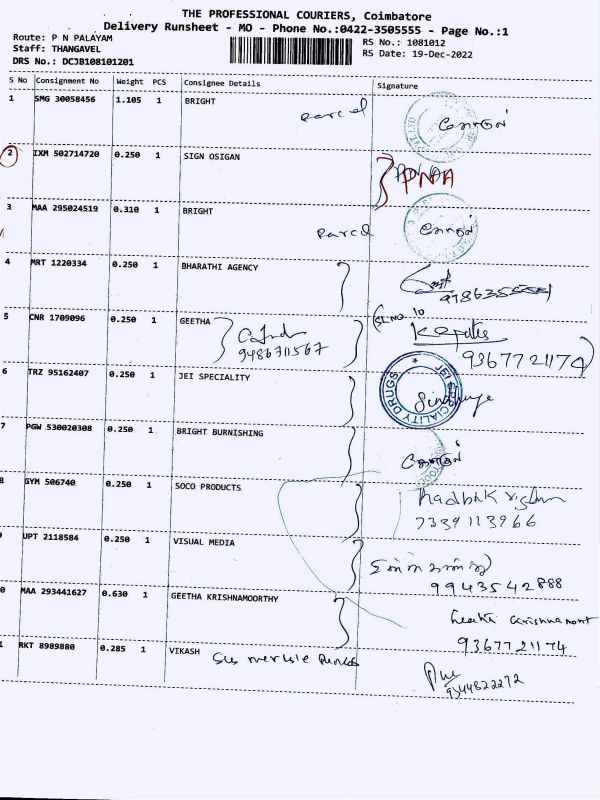 THE PROFESSIONAL COURIERS, Coimbatore
Delivery Runsheet - MO - Phone No.:0422-3505555 - Page No.:1
Route: P N PALAYAM
RS No.: 1081012
Staff: THANGAVEL
RS Date: 19-Dec-2022
DRS No.: DCJB108101201
S No Consignment No Weight PCS Consignee Details Signature
1 SMG 30058456 1.105 1 BRIGHT Parcel
2 IXM 502714720 0.250 1 SIGN OSIGAN PNA
3 MAA 295024519 0.310 1 BRIGHT Parcel
4 MRT 1220334 0.250 1 BHARATHI AGENCY
SL NO 10
5 CNR 1709096 0.250 1 GEETHA
9486711567
9367721174
6 TRZ 95162407 0.250 1 JEI SPECIALITY
JEI SPECIALITY DRUGS
7 PGW 530020308 0.250 1 BRIGHT BURNISHING
8 GYM 506740 0.250 1 SOCO PRODUCTS
7339113966
UPT 2118584 0.250 1 VISUAL MEDIA
9943542888
0 MAA 293441627 0.630 1 GEETHA KRISHNAMOORTHY
9367721174
1 RKT 8989880 0.285 1 VIKASH
9344822272